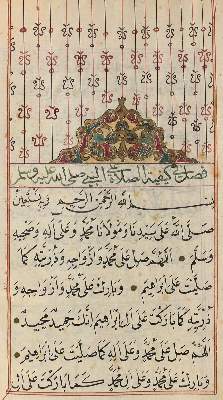 فصل في كيفية الصلاة على النبي صلى الله عليه وسلم
بسم الله الرحمن الرحيم وبه نستعين
صلى الله على سيدنا ومولانا محمد وعلى اله وصحبه
وسلم اللهم صل على محمد وازواجه وذريته كما
صليت على ابراهيم وبارك على محمد وازواجه و
ذريته كما باركت على ال ابراهيم انك حميد مجيد
اللهم صل على محمد وعلى اله كما صليت على ابراهيم
وبارك على محمد وعلى ال محمد كما باركت على ال